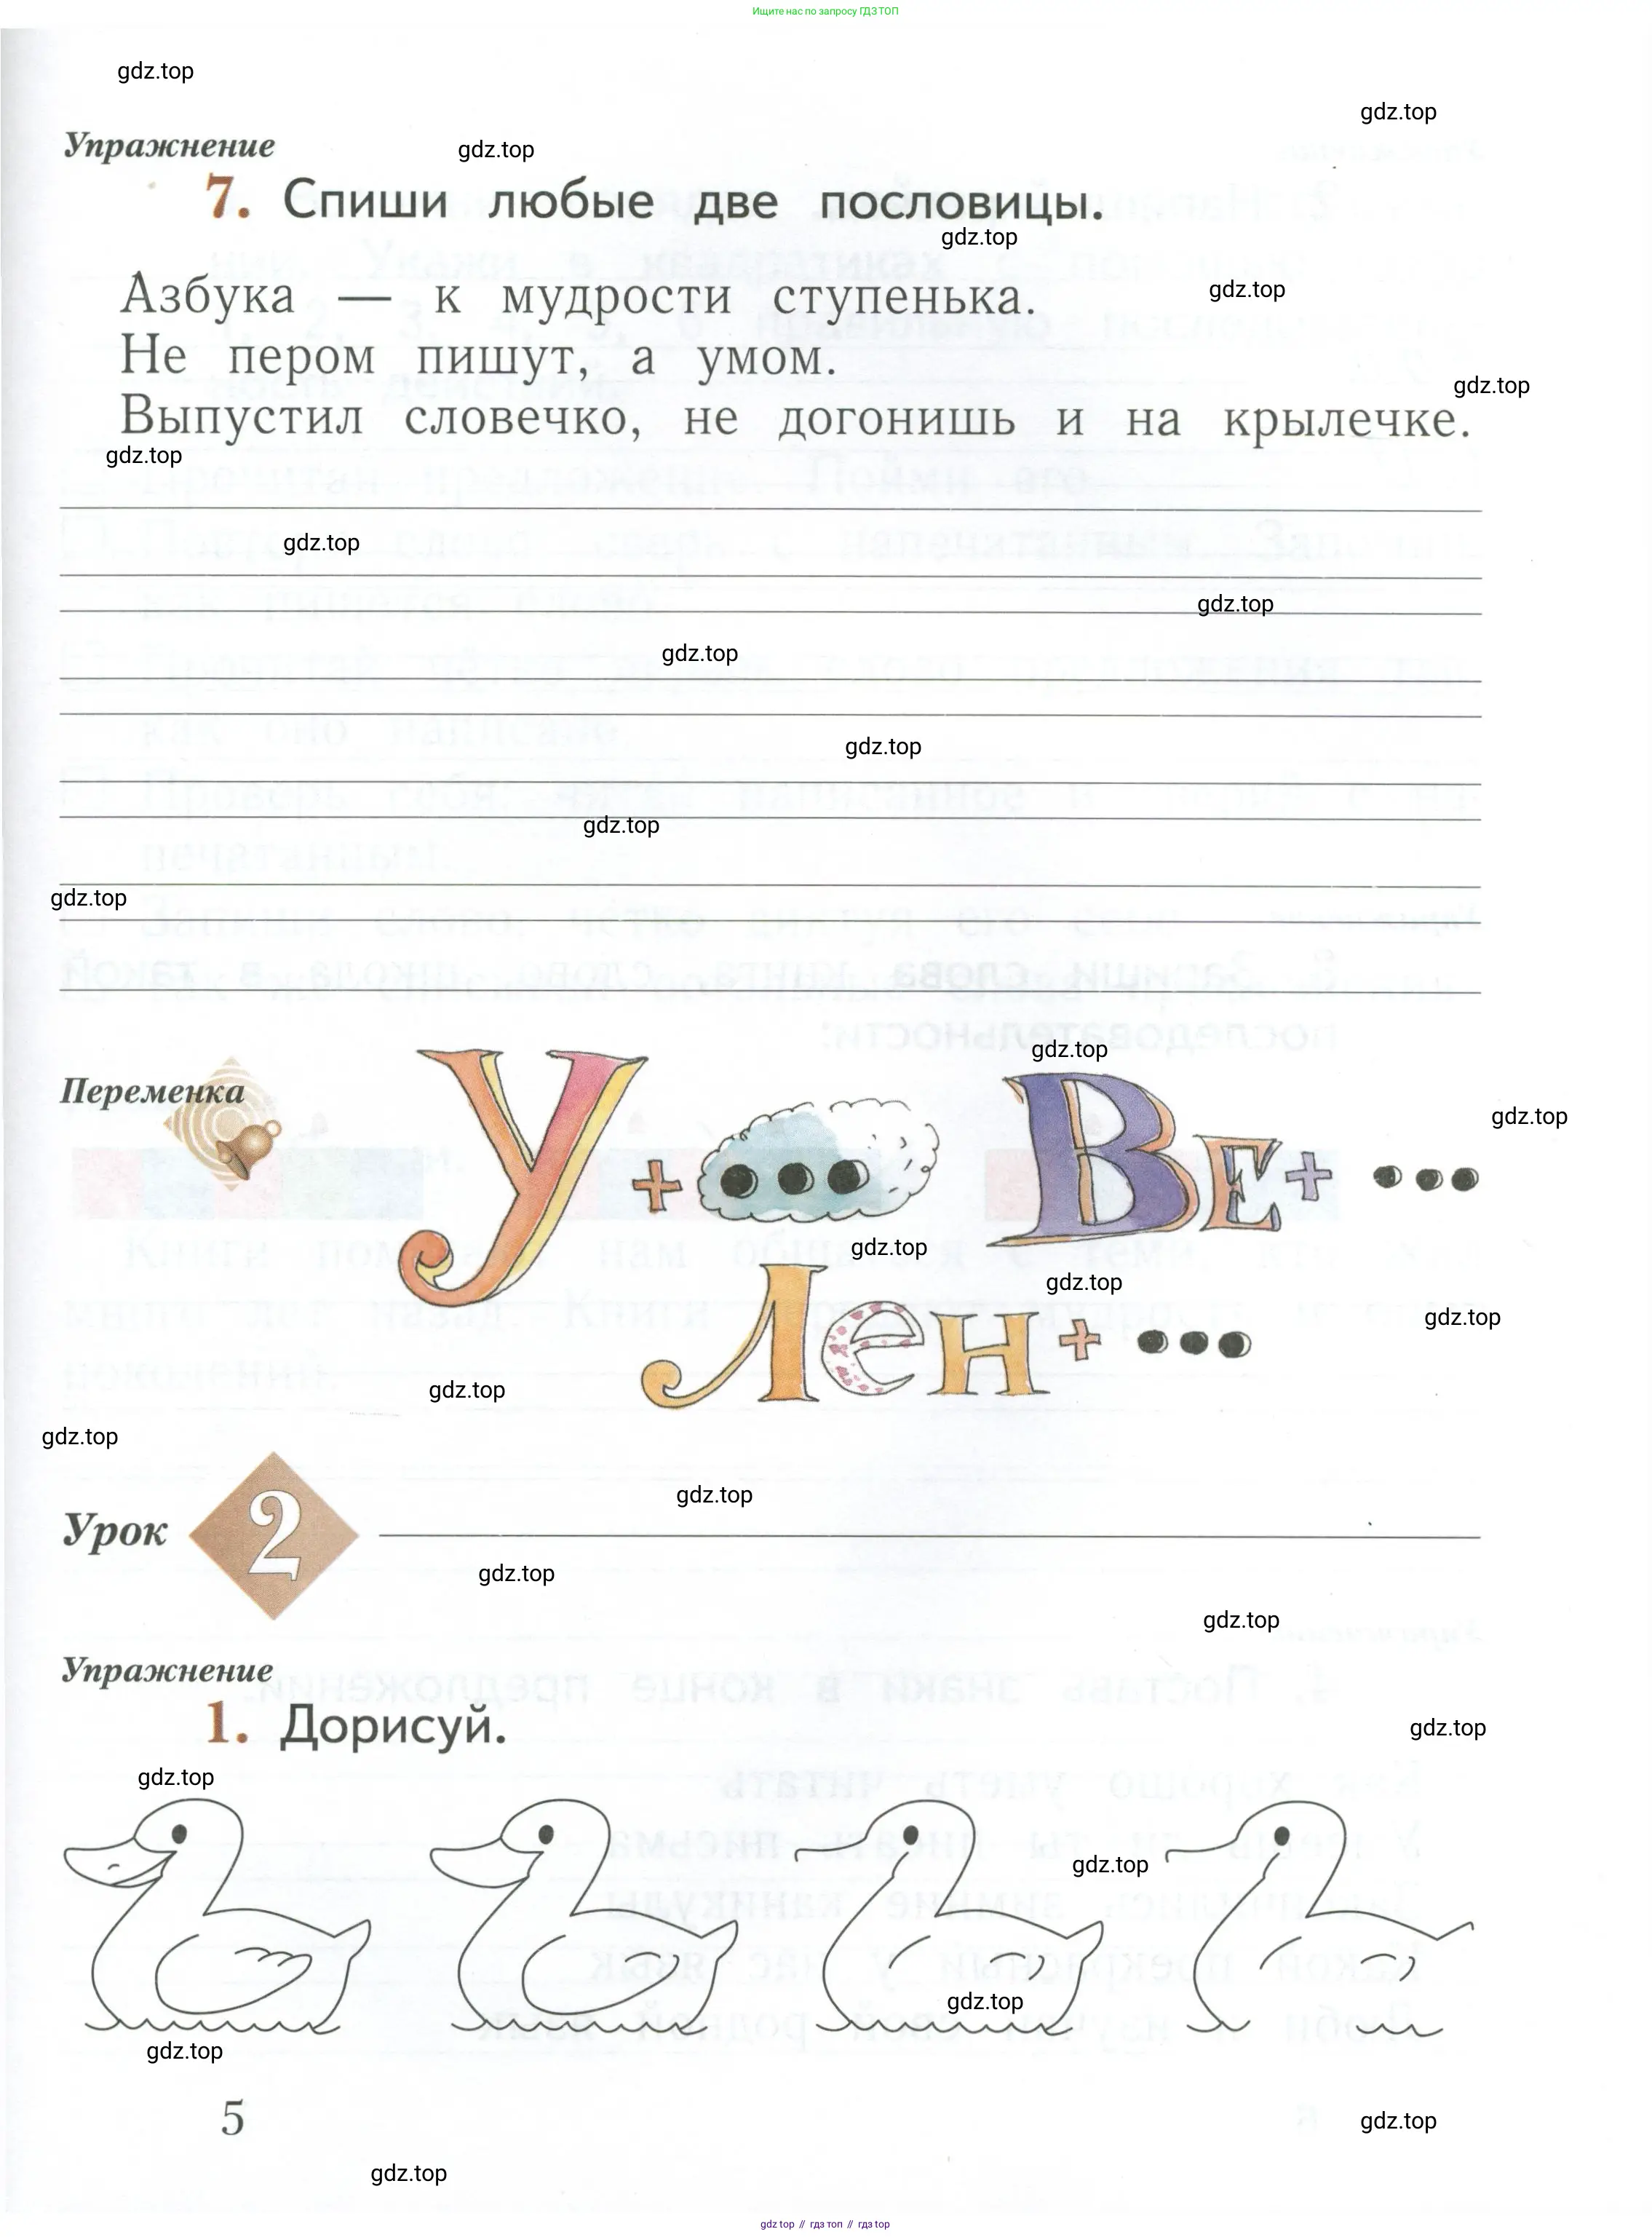 Ищите нас по запросу ГДЗ ТОП
gdz.top
gdz.top
Упражнение
gdz.top
7. Спиши любые две пословицы.
gdz.top
Азбука — к мудрости ступенька.
gdz.top
Не пером пишут, а умом.
gdz.top
Выпустил словечко, не догонишь и на крылечке.
gdz.top
gdz.top
gdz.top
gdz.top
gdz.top
gdz.top
gdz.top
gdz.top
Переменка
gdz.top
У + ••• ВЕ + •••
gdz.top
gdz.top
gdz.top
Лен + •••
gdz.top
gdz.top
gdz.top
Урок 2
gdz.top
gdz.top
Упражнение
1. Дорисуй.
gdz.top
gdz.top
gdz.top
gdz.top
gdz.top
5
gdz.top
gdz.top
gdz top // гдз топ // гдз top